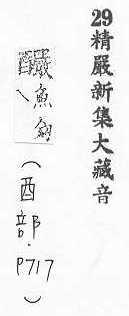 29精嚴新集大藏音
釅魚（酉部·P717）